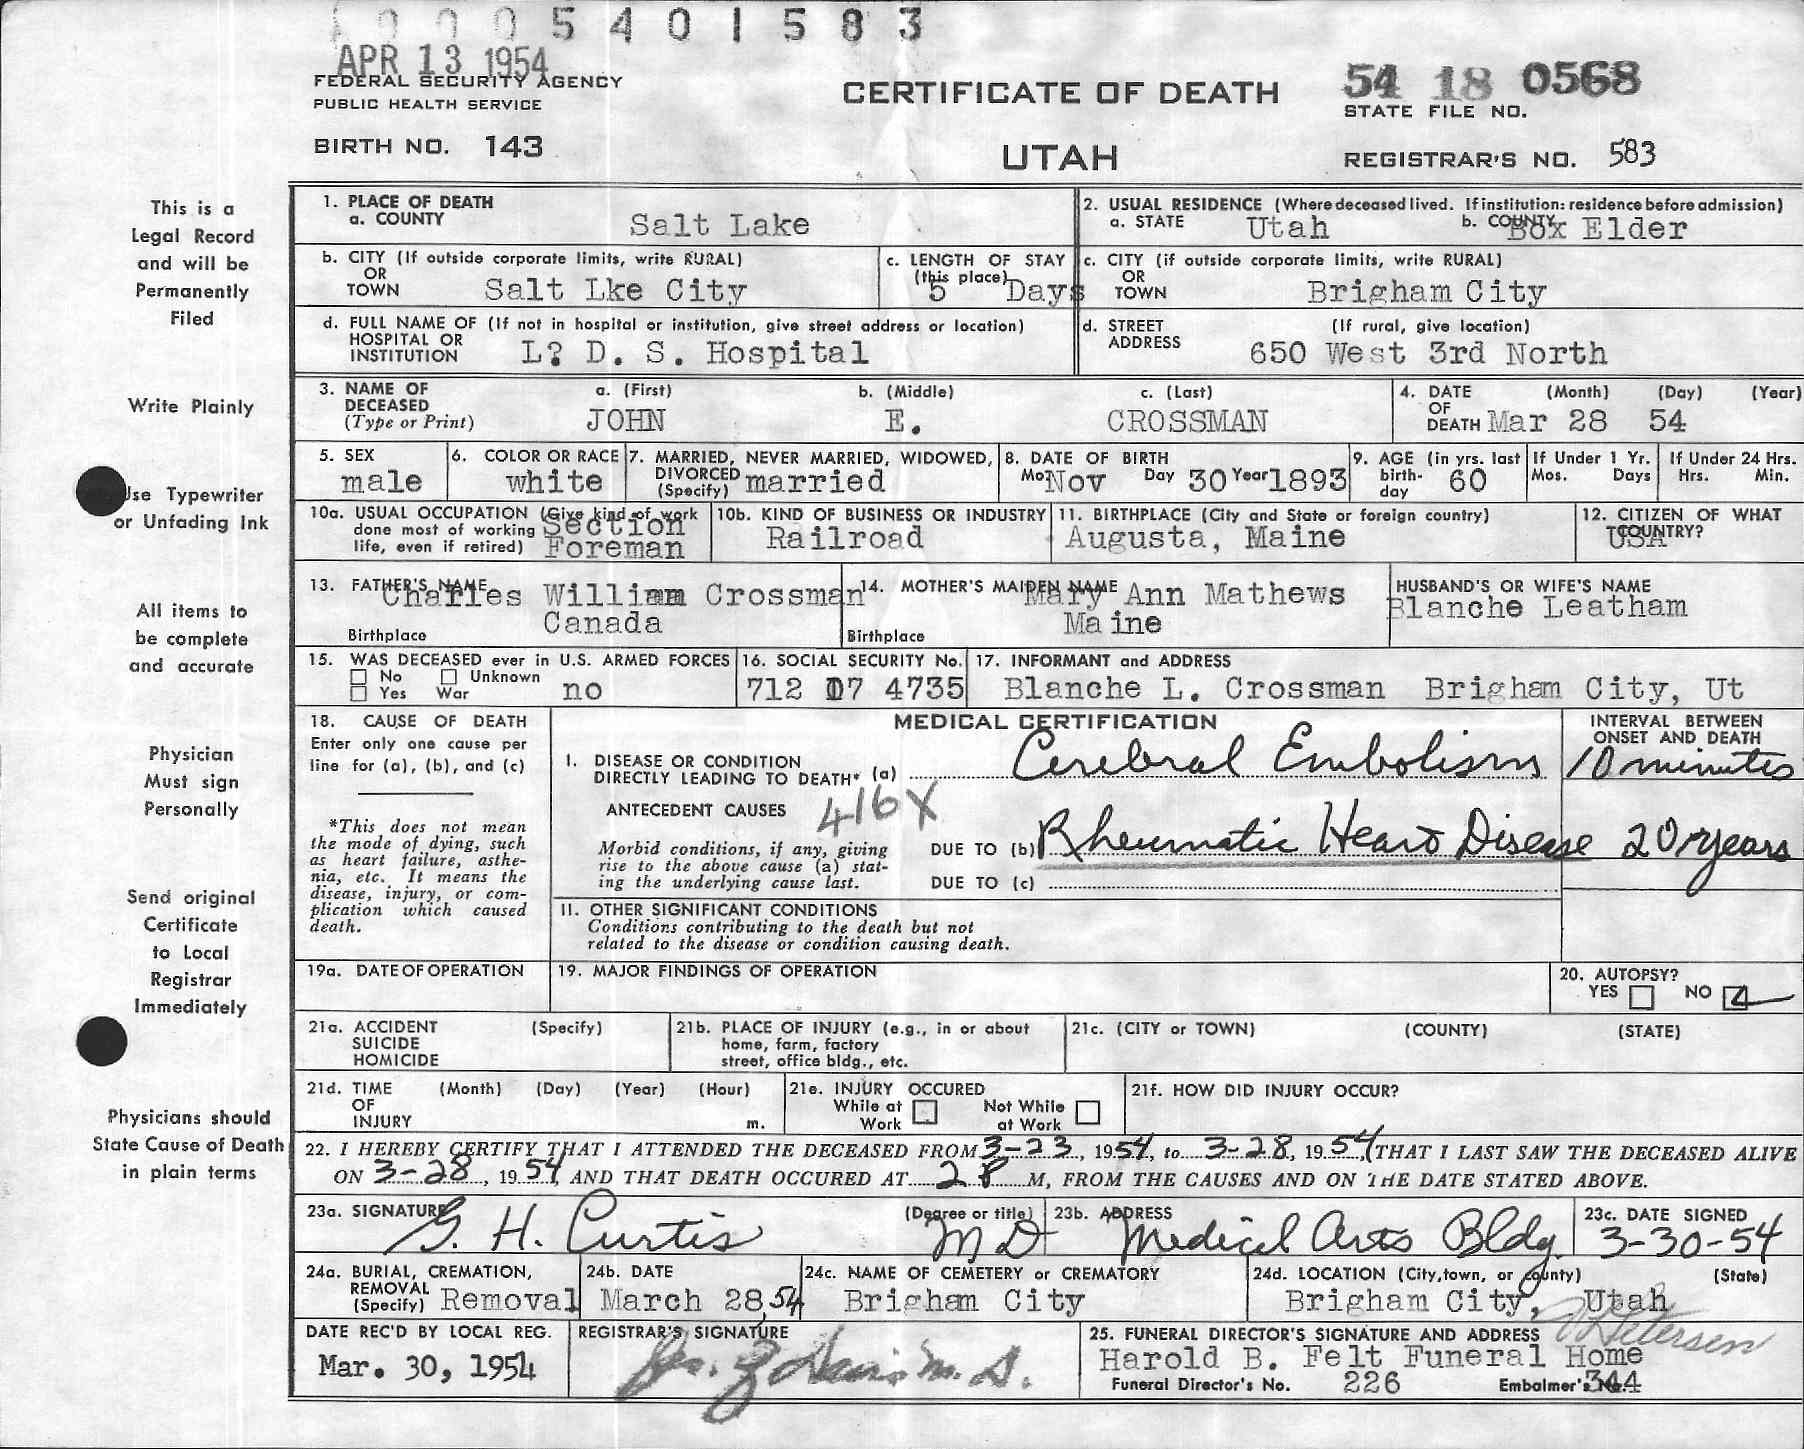 0005401583
APR 13 1954
FEDERAL SECURITY AGENCY
PUBLIC HEALTH SERVICE
BIRTH NO. 143
CERTIFICATE OF DEATH
UTAH
54 18 0568
STATE FILE NO.
REGISTRAR'S NO. 583
This is a
Legal Record
and will be
Permanently
Filed
Write Plainly
Use Typewriter
or Unfading Ink
All items to
be complete
and accurate
Physician
Must sign
Personally
Send original
Certificate
to Local
Registrar
Immediately
Physicians should
State Cause of Death
in plain terms
1. PLACE OF DEATH
a. COUNTY Salt Lake
2. USUAL RESIDENCE (Where deceased lived. If institution: residence before admission)
a. STATE Utah b. COUNTY Box Elder
b. CITY (If outside corporate limits, write RURAL)
OR
TOWN Salt Lke City
c. LENGTH OF STAY
(this place)
5 Days
c. CITY (if outside corporate limits, write RURAL)
OR
TOWN Brigham City
d. FULL NAME OF (If not in hospital or institution, give street address or location)
HOSPITAL OR
INSTITUTION L? D. S. Hospital
d. STREET (If rural, give location)
ADDRESS 650 West 3rd North
3. NAME OF
DECEASED
(Type or Print)
a. (First) b. (Middle) c. (Last)
JOHN E. CROSSMAN
4. DATE (Month) (Day) (Year)
OF
DEATH Mar 28 54
5. SEX
male
6. COLOR OR RACE
white
7. MARRIED, NEVER MARRIED, WIDOWED,
DIVORCED
(Specify) married
8. DATE OF BIRTH
Mo. Nov Day 30 Year 1893
9. AGE (in yrs. last
birth-
day 60
If Under 1 Yr.
Mos. Days
If Under 24 Hrs.
Hrs. Min.
10a. USUAL OCCUPATION (Give kind of work
done most of working
life, even if retired)
Section
Foreman
10b. KIND OF BUSINESS OR INDUSTRY
Railroad
11. BIRTHPLACE (City and State or foreign country)
Augusta, Maine
12. CITIZEN OF WHAT
COUNTRY?
USA
13. FATHER'S NAME
Charles William Crossman
Canada
Birthplace
14. MOTHER'S MAIDEN NAME
Mary Ann Mathews
Maine
Birthplace
HUSBAND'S OR WIFE'S NAME
Blanche Leatham
15. WAS DECEASED ever in U.S. ARMED FORCES
No Unknown
Yes War no
16. SOCIAL SECURITY No.
712 07 4735
17. INFORMANT and ADDRESS
Blanche L. Crossman Brigham City, Ut
18. CAUSE OF DEATH
Enter only one cause per
line for (a), (b), and (c)
*This does not mean
the mode of dying, such
as heart failure, asthe-
nia, etc. It means the
disease, injury, or com-
plication which caused
death.
MEDICAL CERTIFICATION
INTERVAL BETWEEN
ONSET AND DEATH
I. DISEASE OR CONDITION
DIRECTLY LEADING TO DEATH* (a) Cerebral Embolism 10 minutes
ANTECEDENT CAUSES 416X
Morbid conditions, if any, giving
rise to the above cause (a) stat-
ing the underlying cause last.
DUE TO (b) Rheumatic Heart Disease 20 years
DUE TO (c)
II. OTHER SIGNIFICANT CONDITIONS
Conditions contributing to the death but not
related to the disease or condition causing death.
19a. DATE OF OPERATION
19. MAJOR FINDINGS OF OPERATION
20. AUTOPSY?
YES NO
21a. ACCIDENT (Specify)
SUICIDE
HOMICIDE
21b. PLACE OF INJURY (e.g., in or about
home, farm, factory
street, office bldg., etc.
21c. (CITY or TOWN) (COUNTY) (STATE)
21d. TIME (Month) (Day) (Year) (Hour)
OF
INJURY m.
21e. INJURY OCCURED
While at Work Not While at Work
21f. HOW DID INJURY OCCUR?
22. I HEREBY CERTIFY THAT I ATTENDED THE DECEASED FROM 3-23, 1954, to 3-28, 1954, THAT I LAST SAW THE DECEASED ALIVE
ON 3-28, 1954, AND THAT DEATH OCCURED AT 2 P M, FROM THE CAUSES AND ON THE DATE STATED ABOVE.
23a. SIGNATURE (Degree or title)
G. H. Curtis MD
23b. ADDRESS
Medical Arts Bldg.
23c. DATE SIGNED
3-30-54
24a. BURIAL, CREMATION,
REMOVAL
(Specify) Removal
24b. DATE
March 28,54
24c. NAME OF CEMETERY or CREMATORY
Brigham City
24d. LOCATION (City, town, or county) (State)
Brigham City, Utah
DATE REC'D BY LOCAL REG.
Mar. 30, 1954
REGISTRAR'S SIGNATURE
M.D.
25. FUNERAL DIRECTOR'S SIGNATURE AND ADDRESS
Petersen
Harold B. Felt Funeral Home
Funeral Director's No. 226 Embalmer's No. 344